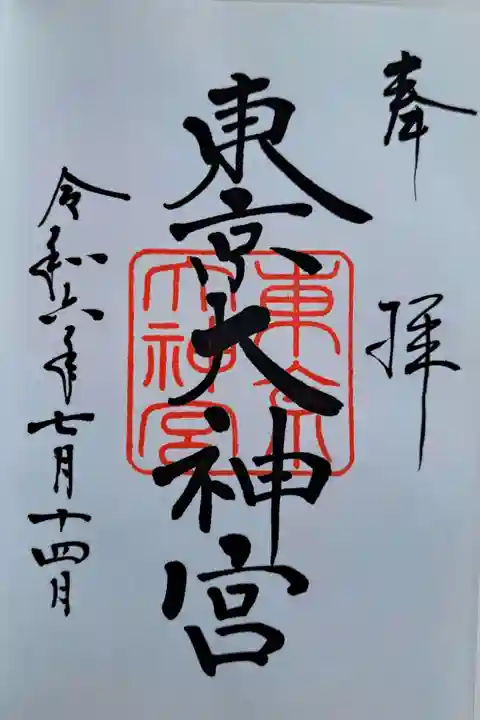 奉拝
東京大神宮
東京
大神宮
令和六年七月十四月